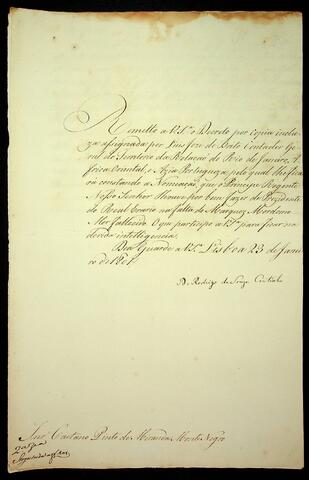 Remetto a V.S.ª o Decreto por copia inclu
za assignada por Luis Joze de Brito Contador Ge
ral do Territorio da Relação do Rio de Janeiro, A
frica Oriental, e Azia Portugueza, pelo qual lhe fica
rá constando a Nomeação, que o Principe Regente
Nosso Senhor Houve por bem fazer de Prezidente
do Real Erario na falta do Marquez Mordomo
Mór fallecido. O que participo a V.S.ª para ficar na
devida intelligencia.
Deos Guarde a V.S.ª Lisboa 23 de Janei
ro de 1801.
D. Rodrigo de Souza Coutinho
Snr. Caetano Pinto de Miranda Monte Negro
2.ª